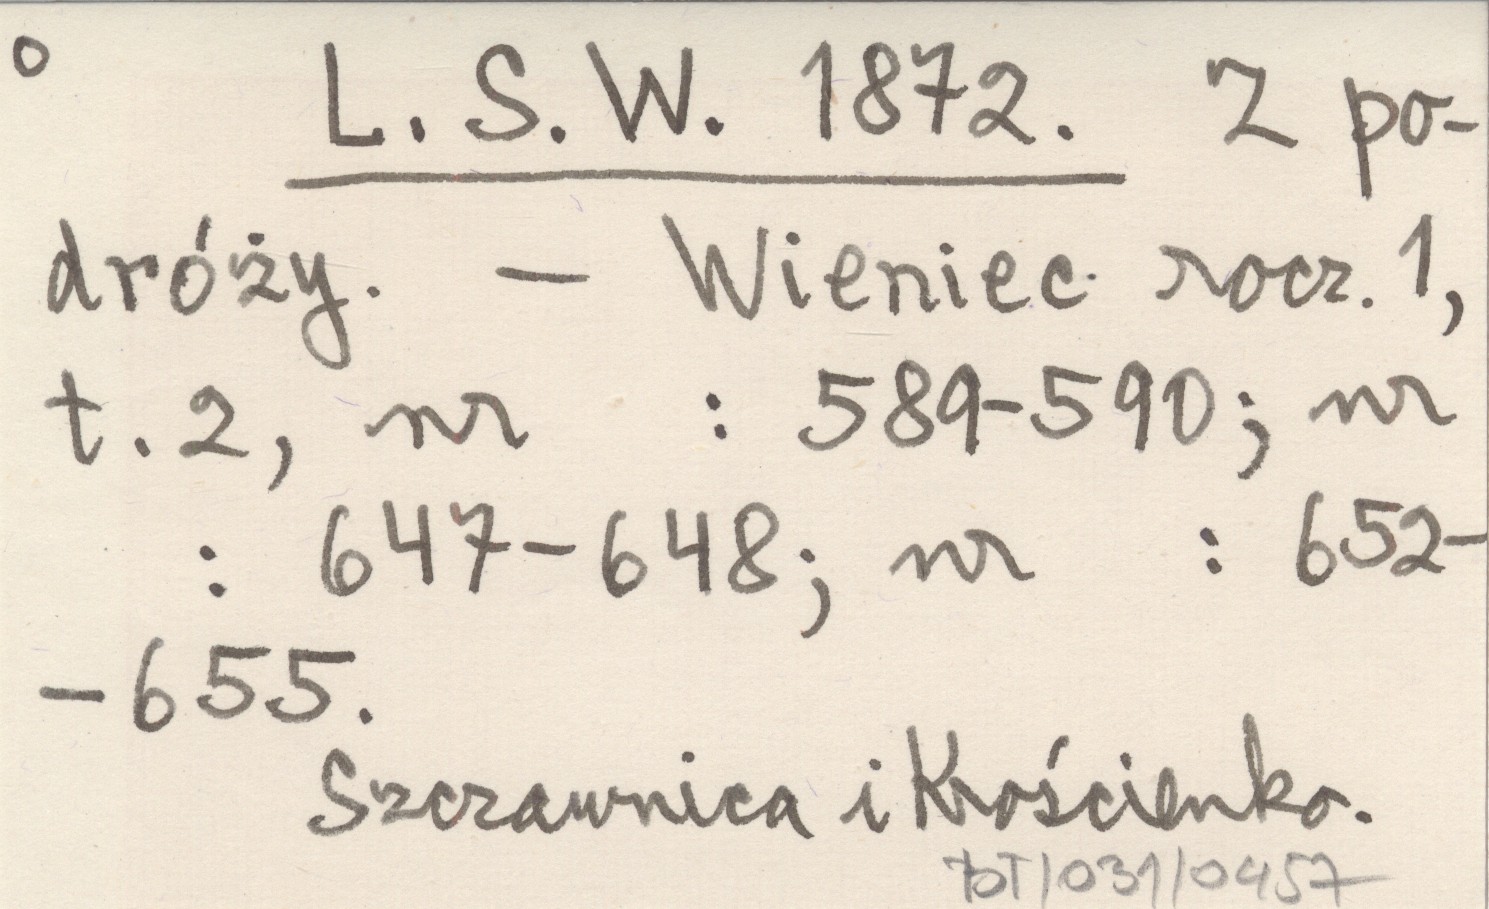 o L. S. W. 1872. Z po-
dróży. — Wieniec rocz. 1,
t. 2, nr : 589-590; nr
: 647-648; nr : 652-
-655.
Szczawnica i Krościenko.
TOT/031/0457